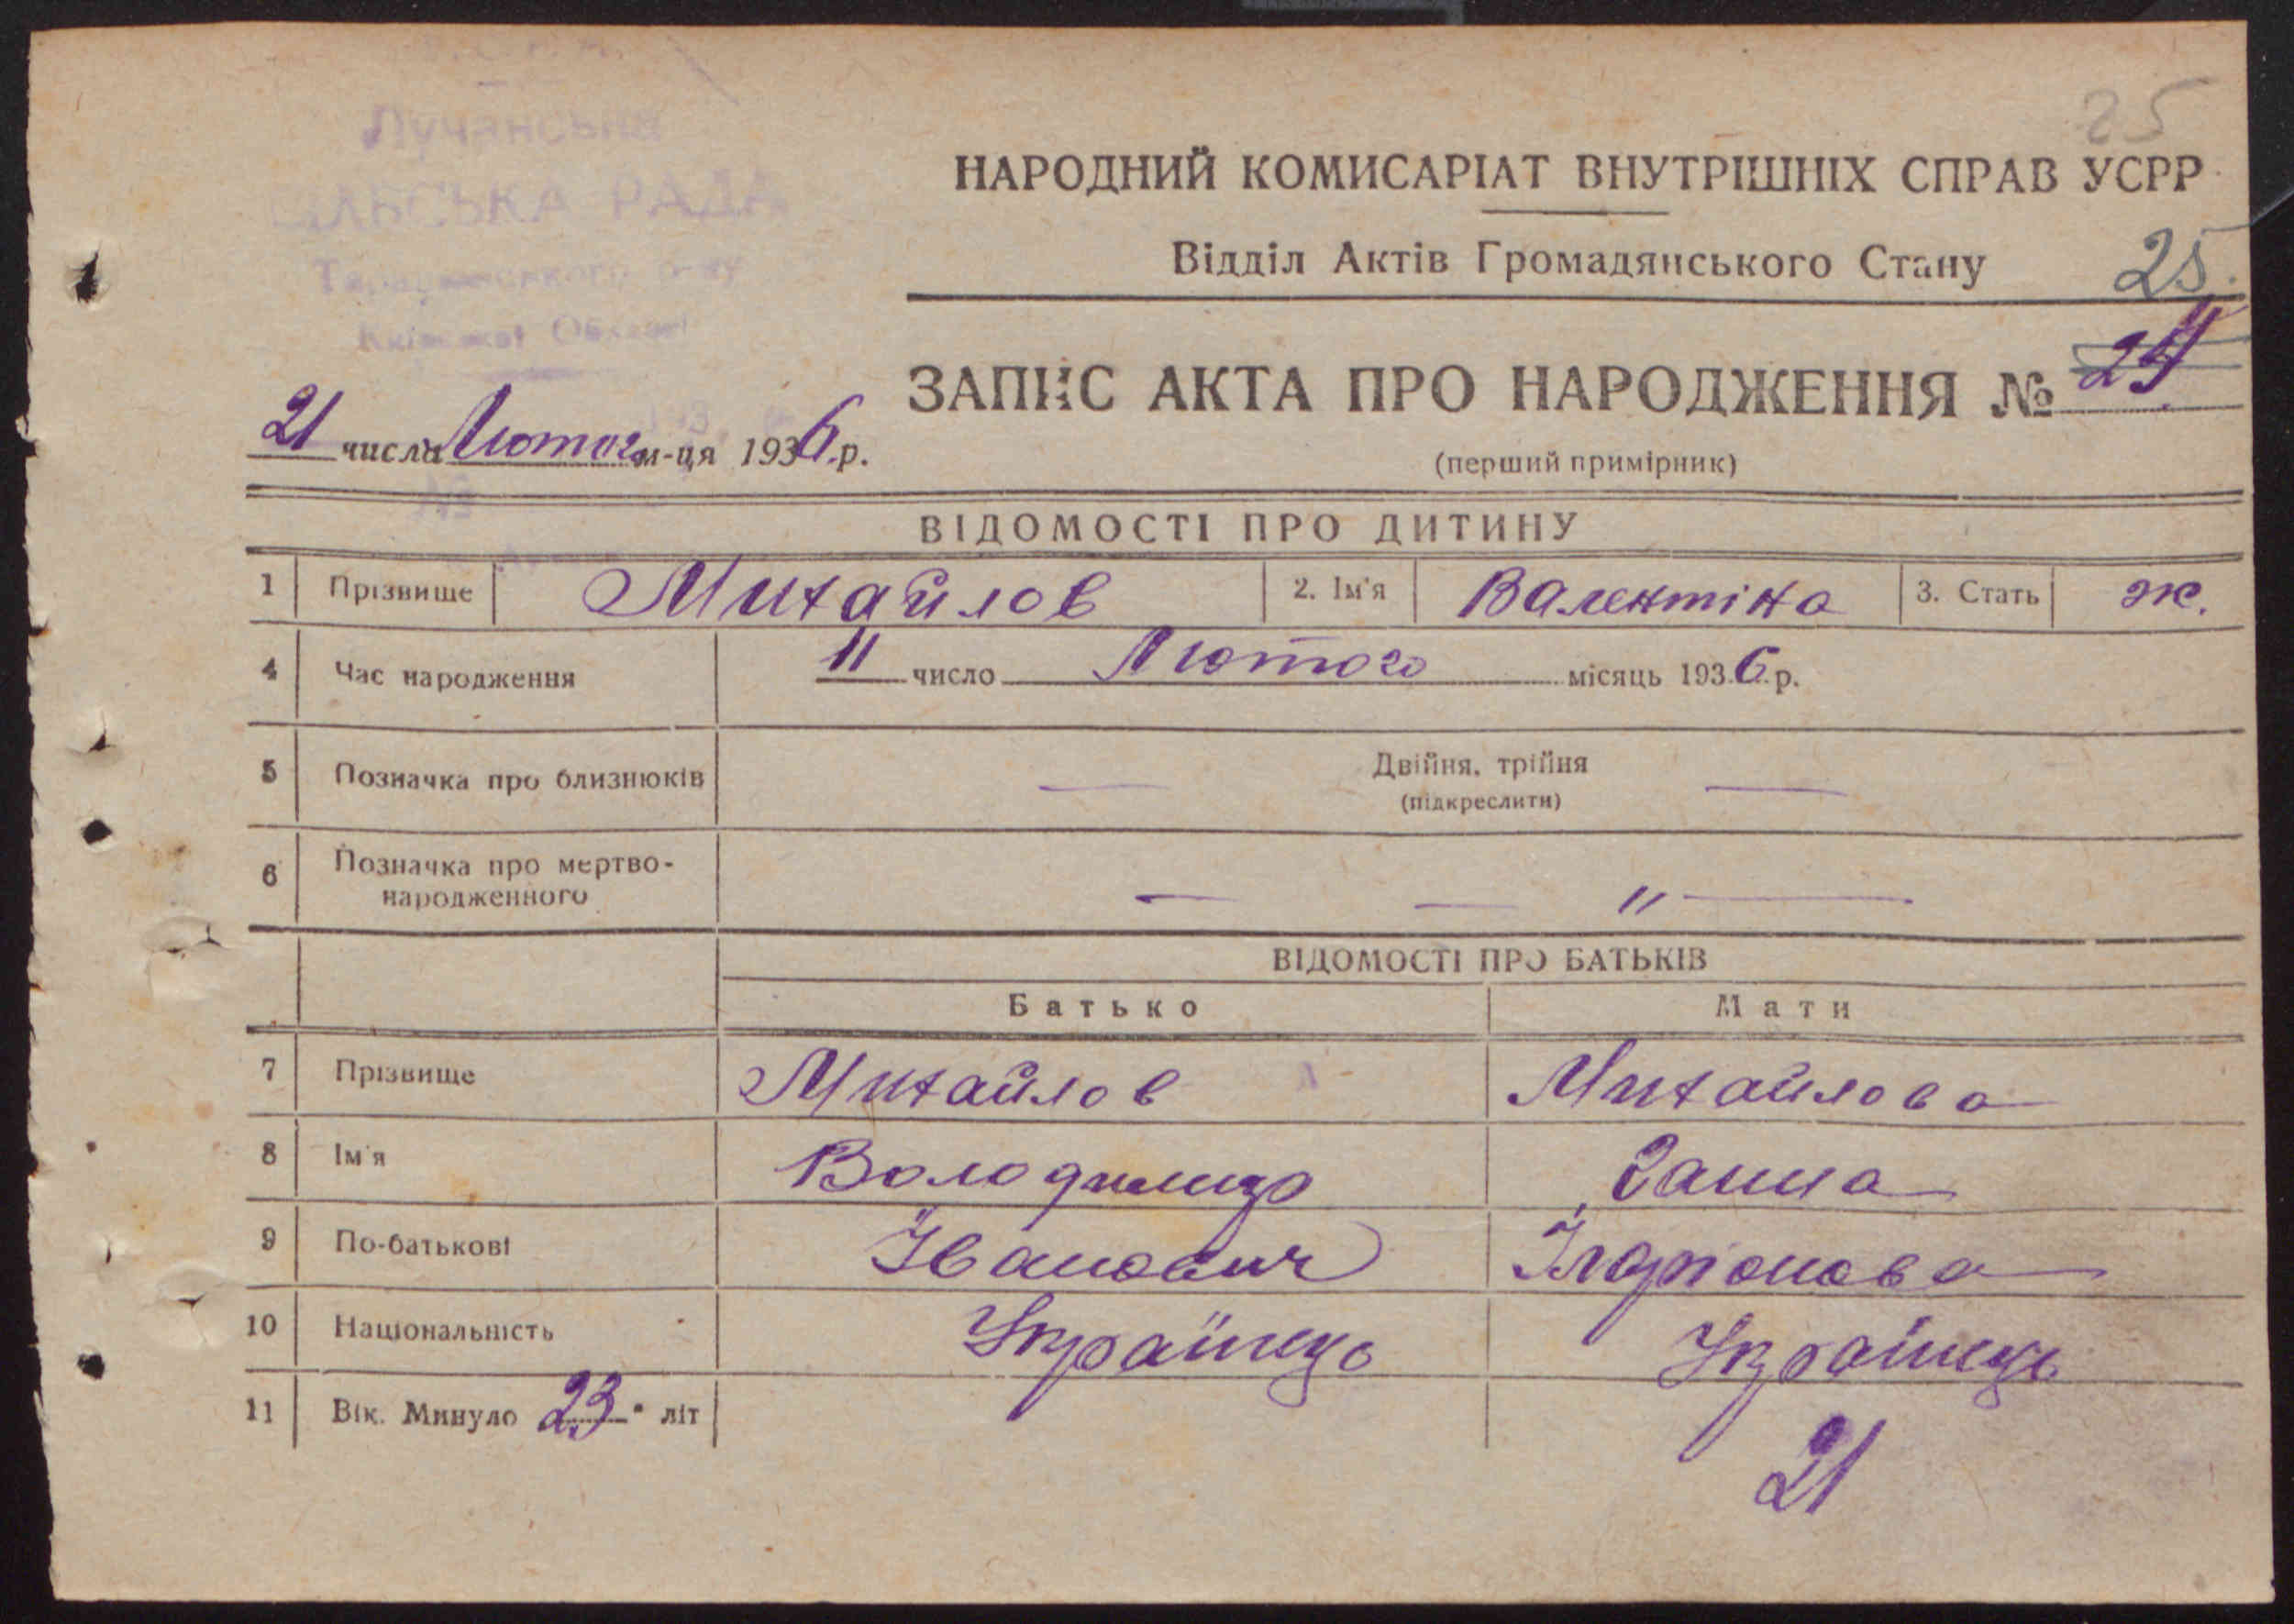 25
Лучанська
СІЛЬСЬКА РАДА
Таращанського р-ну
Київської Області
НАРОДНИЙ КОМИСАРІАТ ВНУТРІШНІХ СПРАВ УСРР
Відділ Актів Громадянського Стану 25.
ЗАПИС АКТА ПРО НАРОДЖЕННЯ № 24
21 числа Лютого м-ця 1936 р.
(перший примірник)
№
ВІДОМОСТІ ПРО ДИТИНУ
1 Прізвище Михайлов 2. Ім'я Валентіна 3. Стать ж.
4 Час народження 11 число Лютого місяць 1936 р.
5 Позначка про близнюків — Двійня, трійня —
(підкреслити)
6 Позначка про мертво-
народженного — — " —
ВІДОМОСТІ ПРО БАТЬКІВ
Батько Мати
7 Прізвище Михайлов Михайлова
8 Ім'я Володимир Ганна
9 По-батькові Іванович Іларіонова
10 Національність Українець Українець
11 Вік. Минуло 23 літ 21